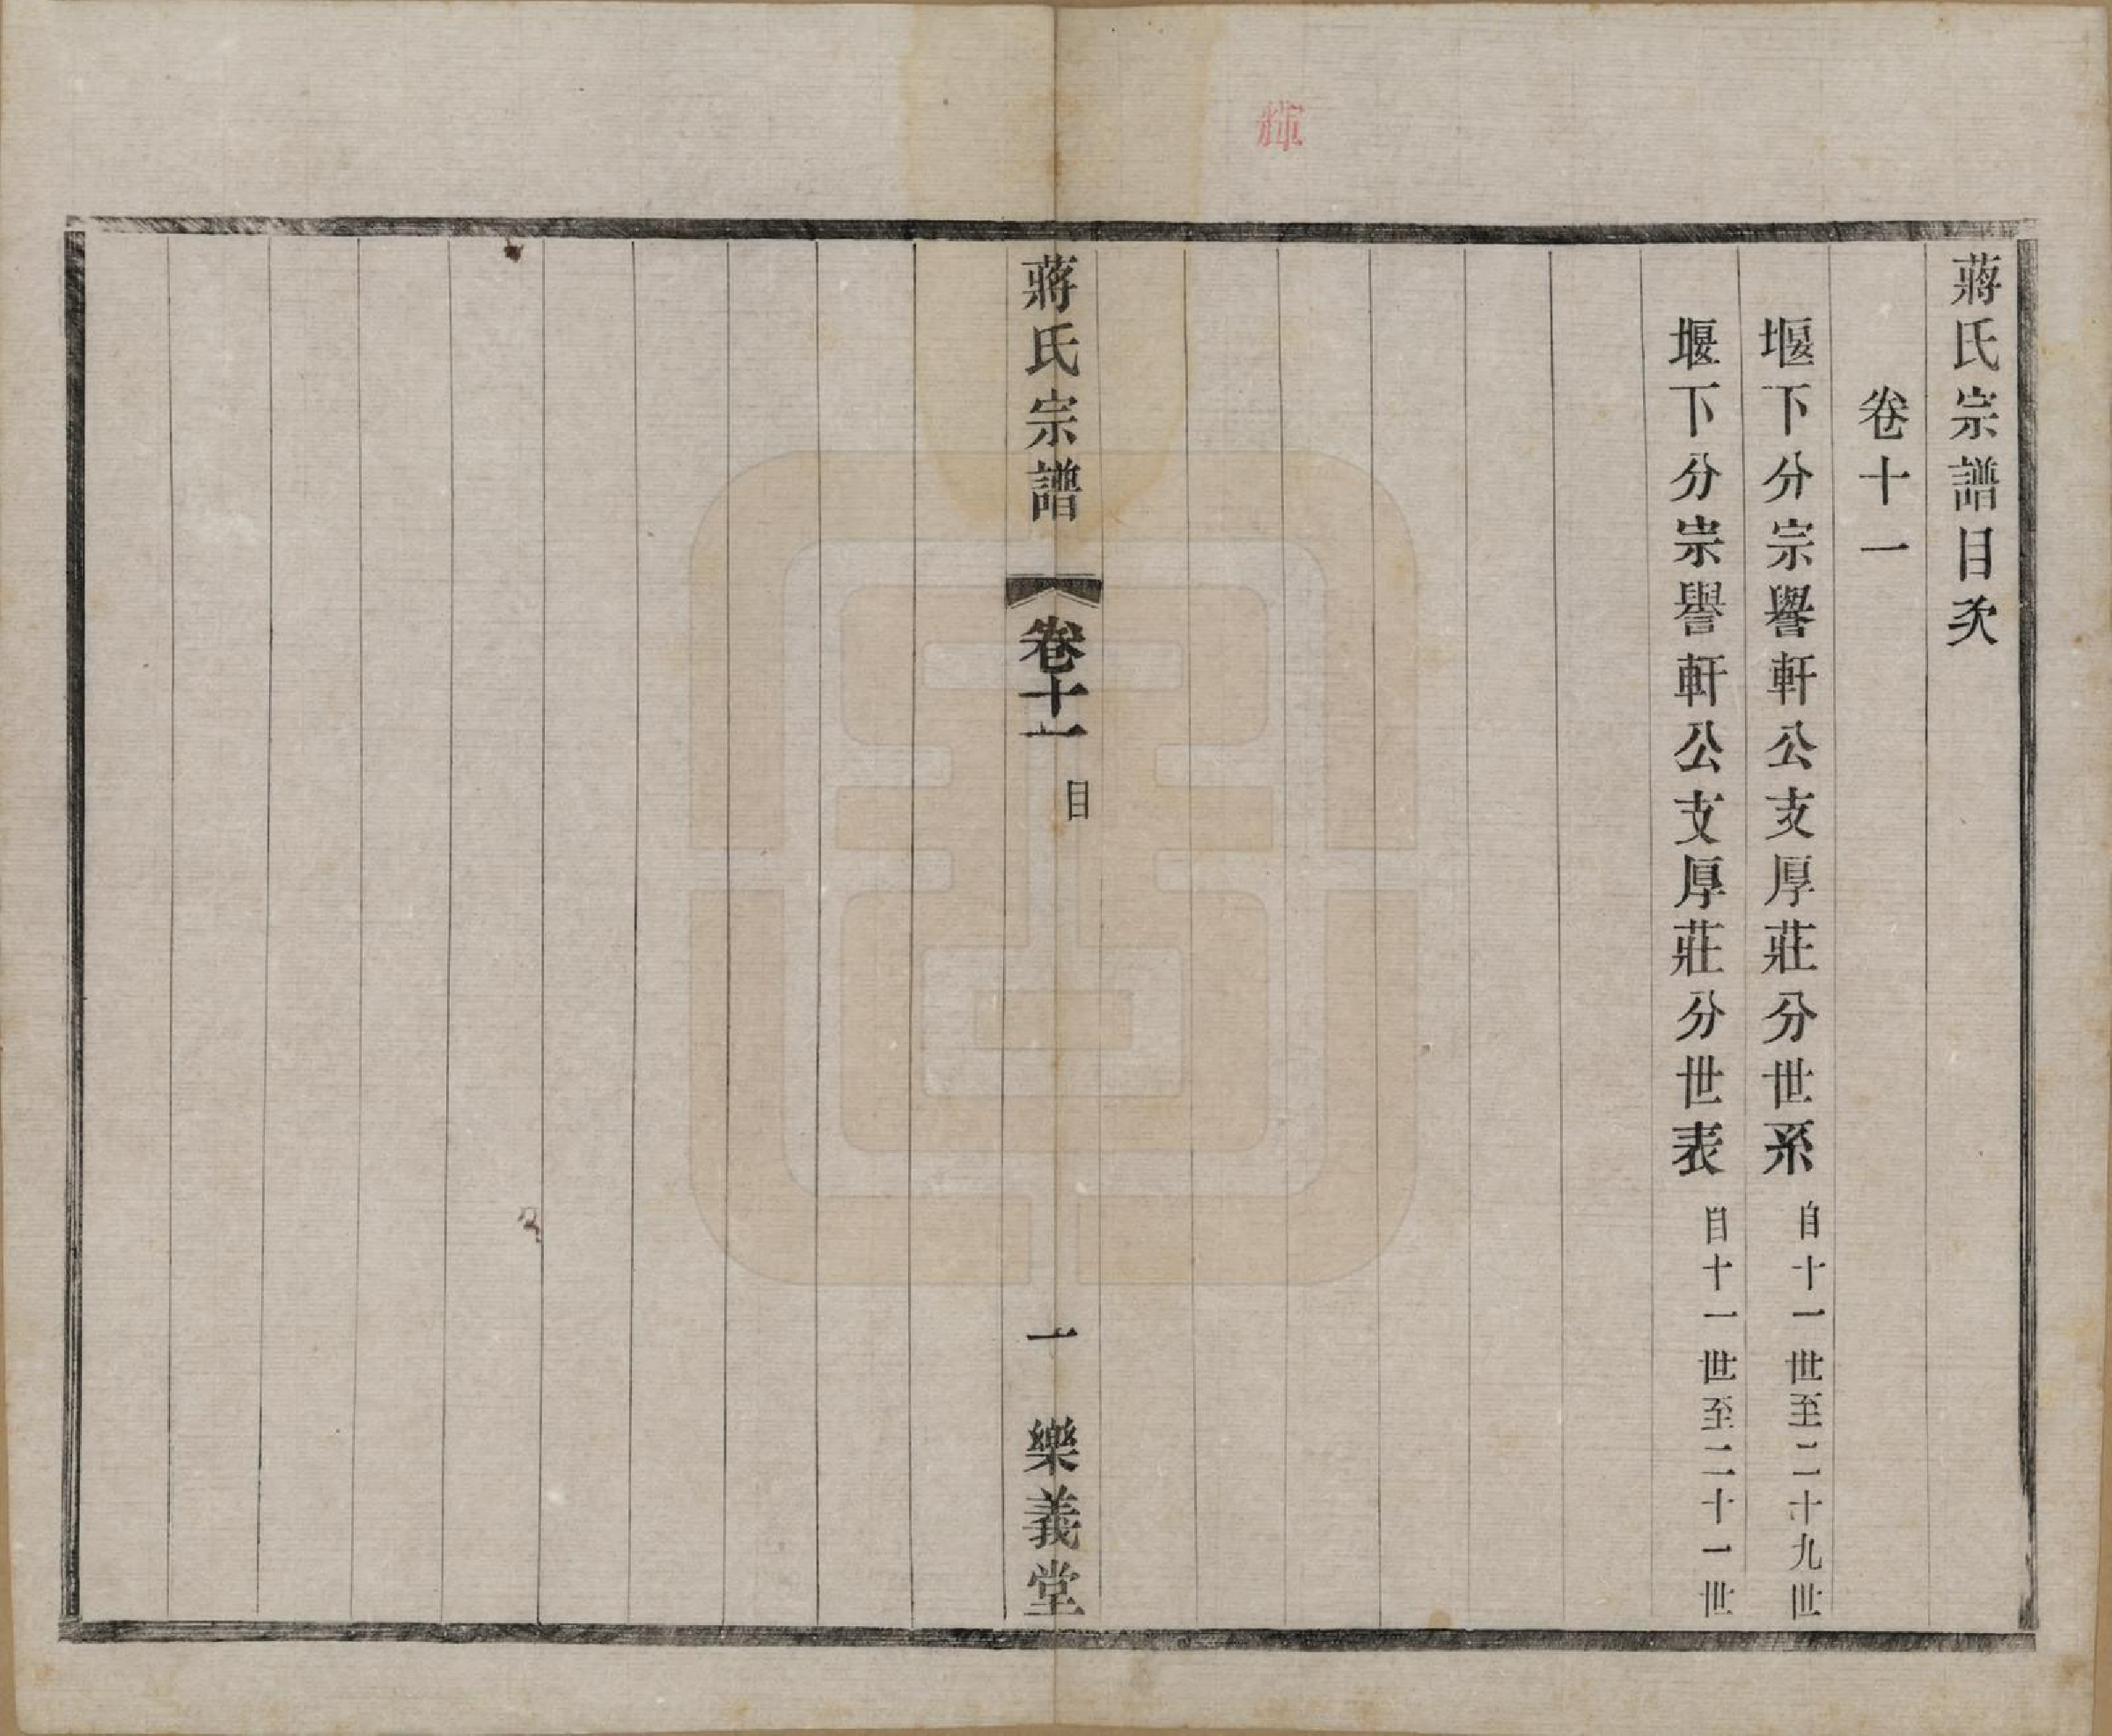 輝
蔣氏宗譜目次
卷十一
堰下分宗譽軒公支厚莊分世系自十一世至二十九世
堰下分宗譽軒公支厚莊分世表自十一世至二十一世
蔣氏宗譜
卷十一
目
一
樂義堂